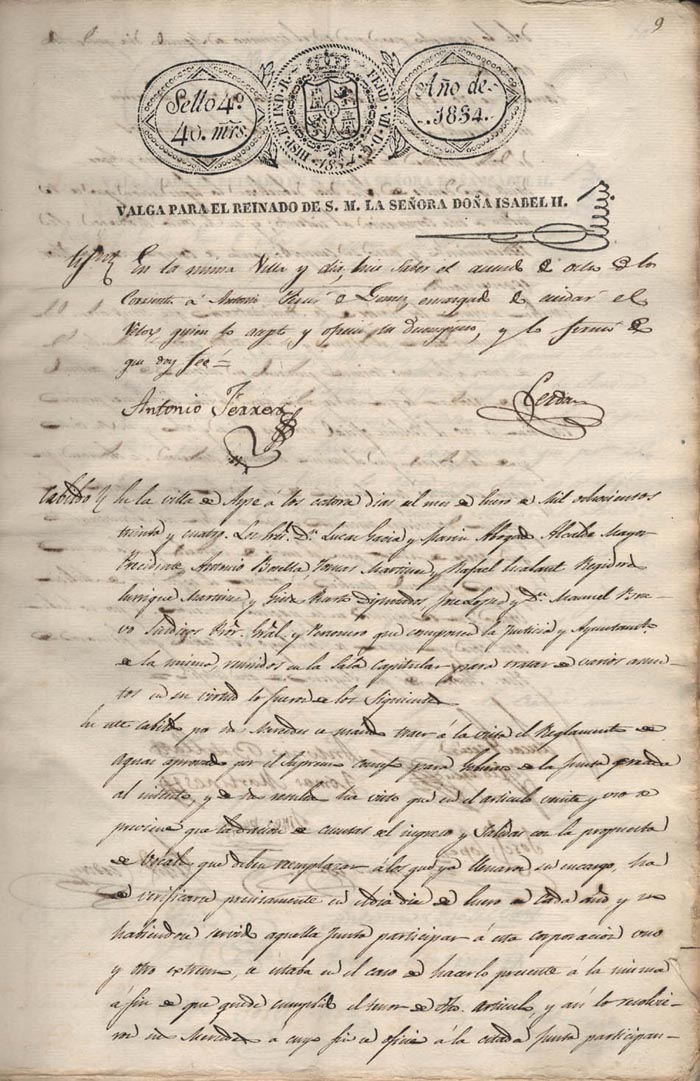 9
Sello 4º
40. mrs.
HISP. ET IND. R. FERD. VII D. G. 1834
Año de
1834.
VALGA PARA EL REINADO DE S. M. LA SEÑORA DOÑA ISABEL II.
En la misma Villa y dia, hice saber el acuerdo de ocho de los
Corrientes á Antonio Ferrer de Gomez encargado de cuidar el
Relox quien lo acepto y ofrecio su desempeño, y lo firmó de
que doy fée=
Antonio Ferrer
Cerdan
Cabildo En la villa de Aspe á los catorce dias del mes de Enero de Mil ochocientos
treinta y cuatro. Los Sres. Dn. Lucas Garcia y Abogado Alcalde Mayor
Presidente Antonio Botella, Tomas Martinez y Rafael Regidores
Enrique Martinez y Diputados Jose Lopez y Dn. Manuel Bra-
vo Sindicos Pror. Gral. y Personero que componen la Justicia y Ayuntamto.
de la misma, reunidos en la Sala Capitular para tratar de varios asun-
tos en su virtud lo fueron de los Siguientes
En este cabildo por sus Mercedes se mandó traer á la vista el Reglamento de
aguas aprovado por el Supremo Consejo para Govierno de la Junta creada
al intento, y de su resulta ha visto que en el articulo veinte y uno se
previene que la dacion de cuentas del ingreso y Salidas con la propuesta
de Vocales que deben reemplazar á los que ya llenaron su encargo, ha
de verificarse precisamente en el dia diez de Enero de cada año y no
habiendose servido aquella Junta participar á esta corporacion uno
y otro extremo, se estaba en el caso de hacerlo presente á la misma
á fin de que quede cumplido el tenor de dho. articulo, y asi lo resolvie-
ron sus Mercedes a cuyo fin se oficie á la citada Junta participan-